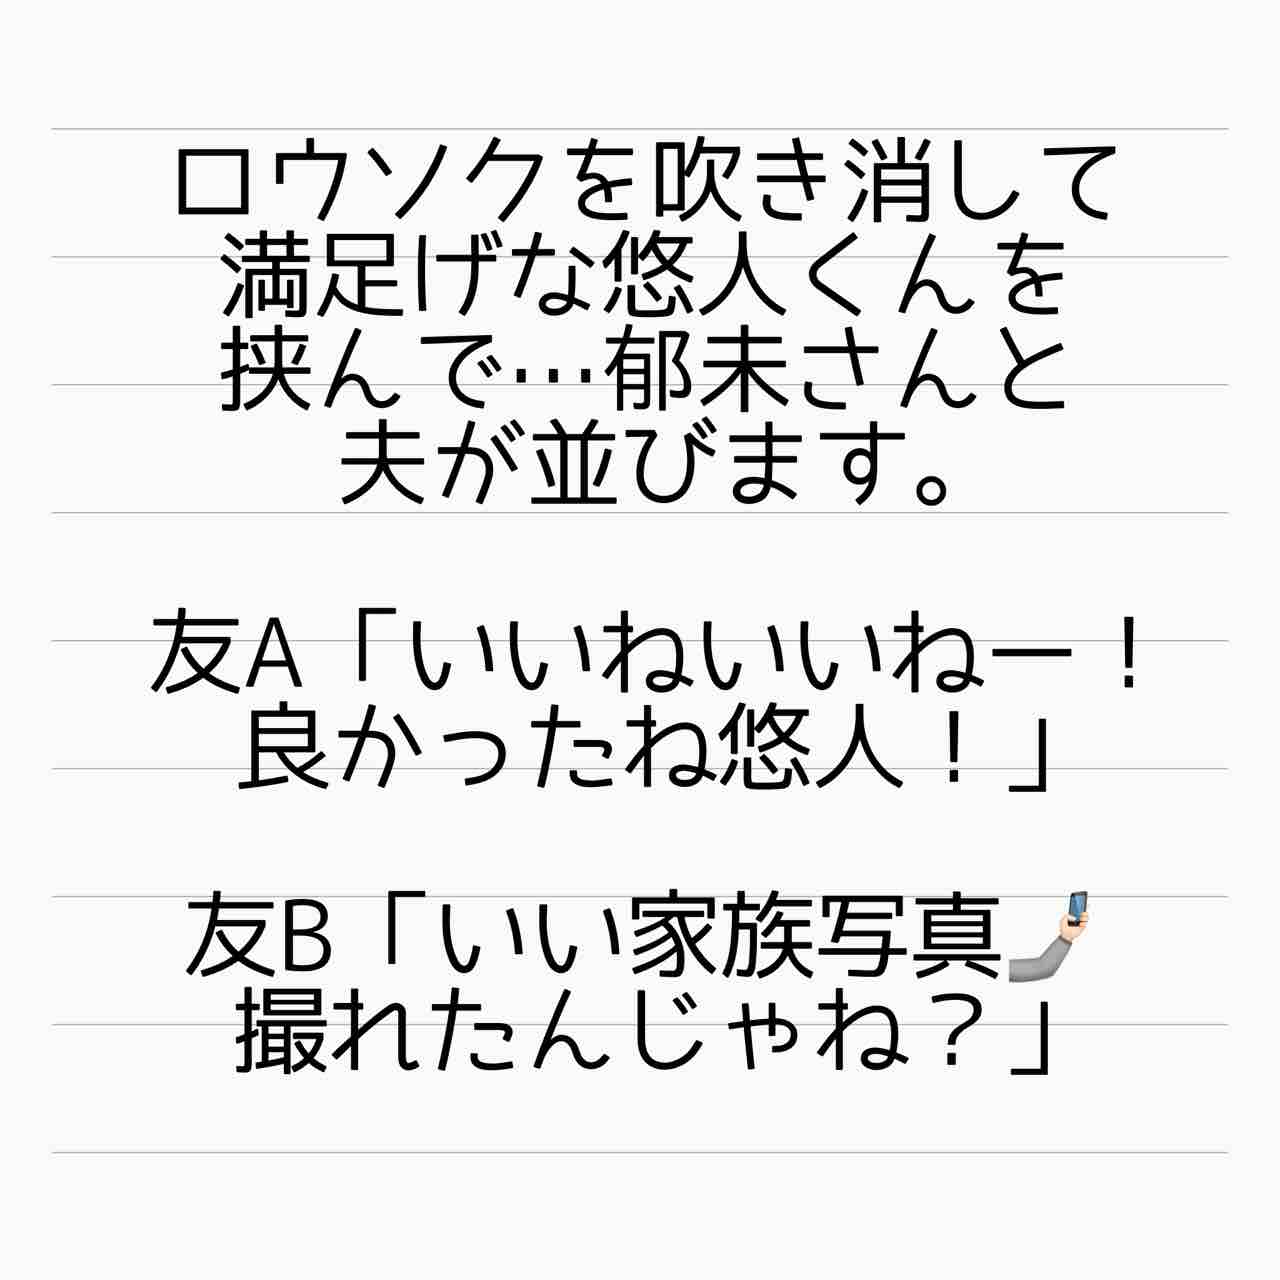 ロウソクを吹き消して
満足げな悠人くんを
挟んで…郁未さんと
夫が並びます。
友A「いいねいいねー！
良かったね悠人！」
友B「いい家族写真🤳🏻
撮れたんじゃね？」